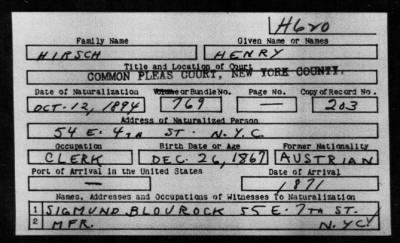 H620
Family Name Given Name or Names
HIRSCH HENRY
Title and Location of Court
COMMON PLEAS COURT, NEW YORK COUNTY.
Date of Naturalization Volume or Bundle No. Page No. Copy of Record No.
OCT-12, 1894 769 — 203
Address of Naturalized Person
54 E. 4TH ST. N.Y.C.
Occupation Birth Date or Age Former Nationality
CLERK DEC. 26, 1867 AUSTRIAN
Port of Arrival in the United States Date of Arrival
— 1871
Names, Addresses and Occupations of Witnesses To Naturalization
1 SIGMUND BLOUROCK 55 E. 7TH ST.
2 MFR. N.Y.C.